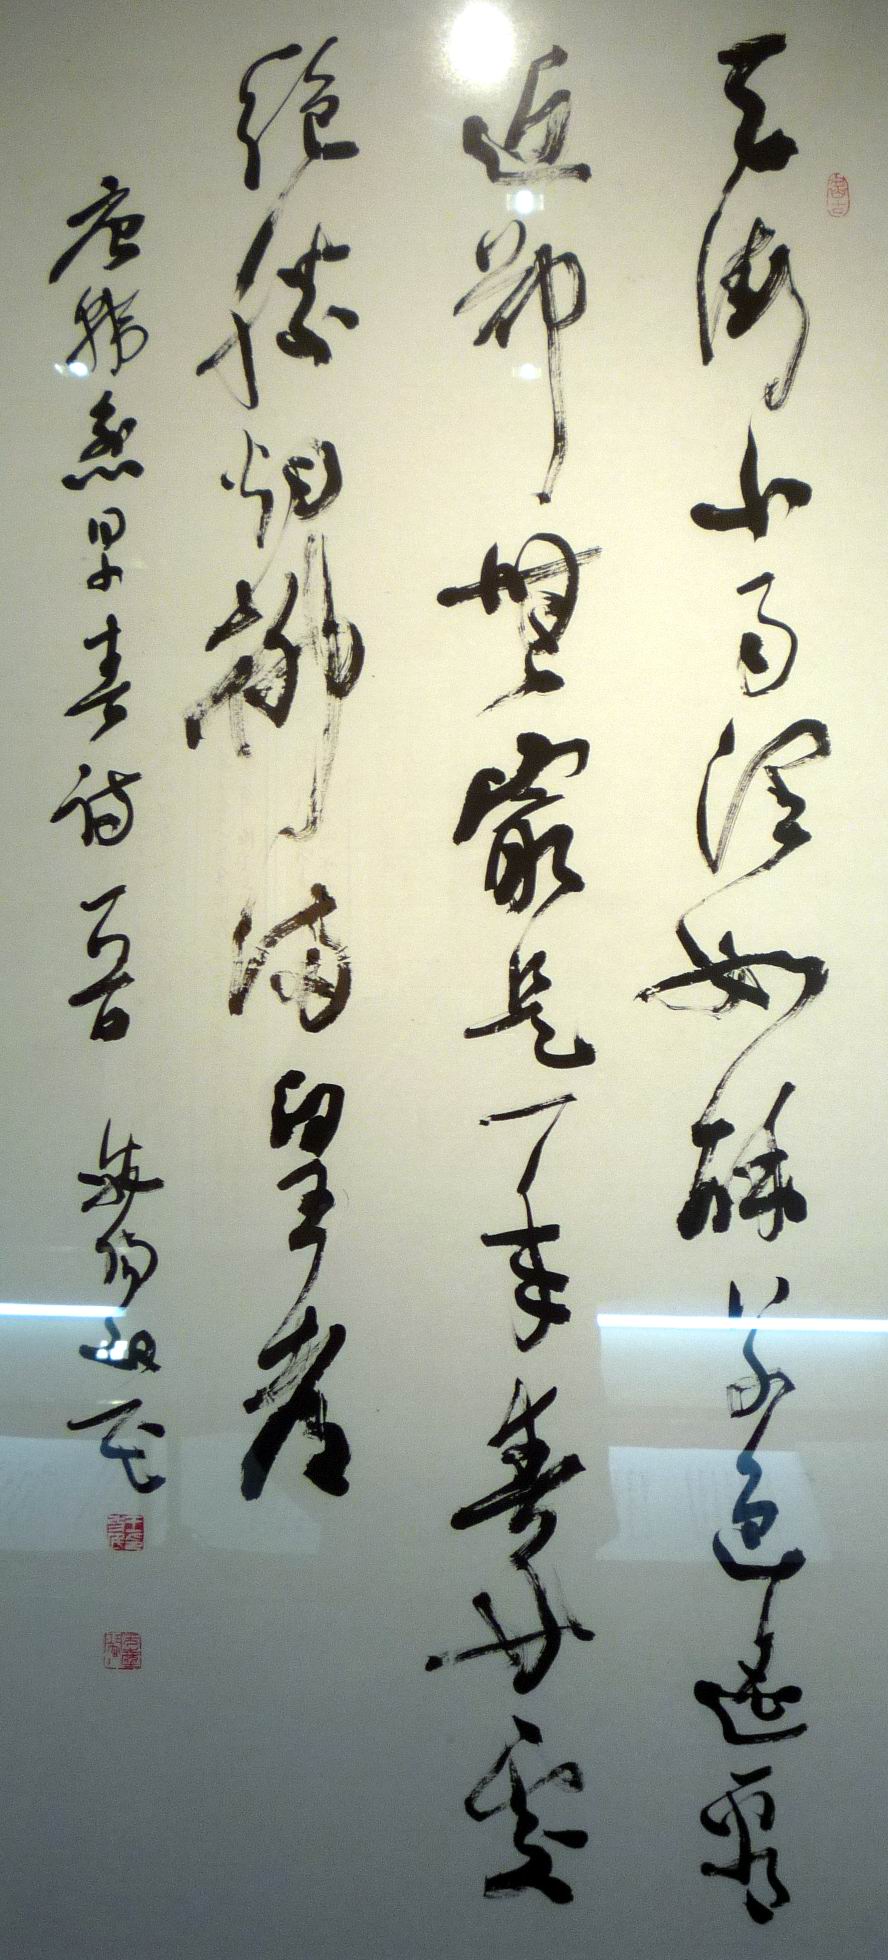 天街小雨潤如酥草色遙看
近卻無最是一年春好處
絕勝烟柳滿皇都
唐韓愈早春詩一首